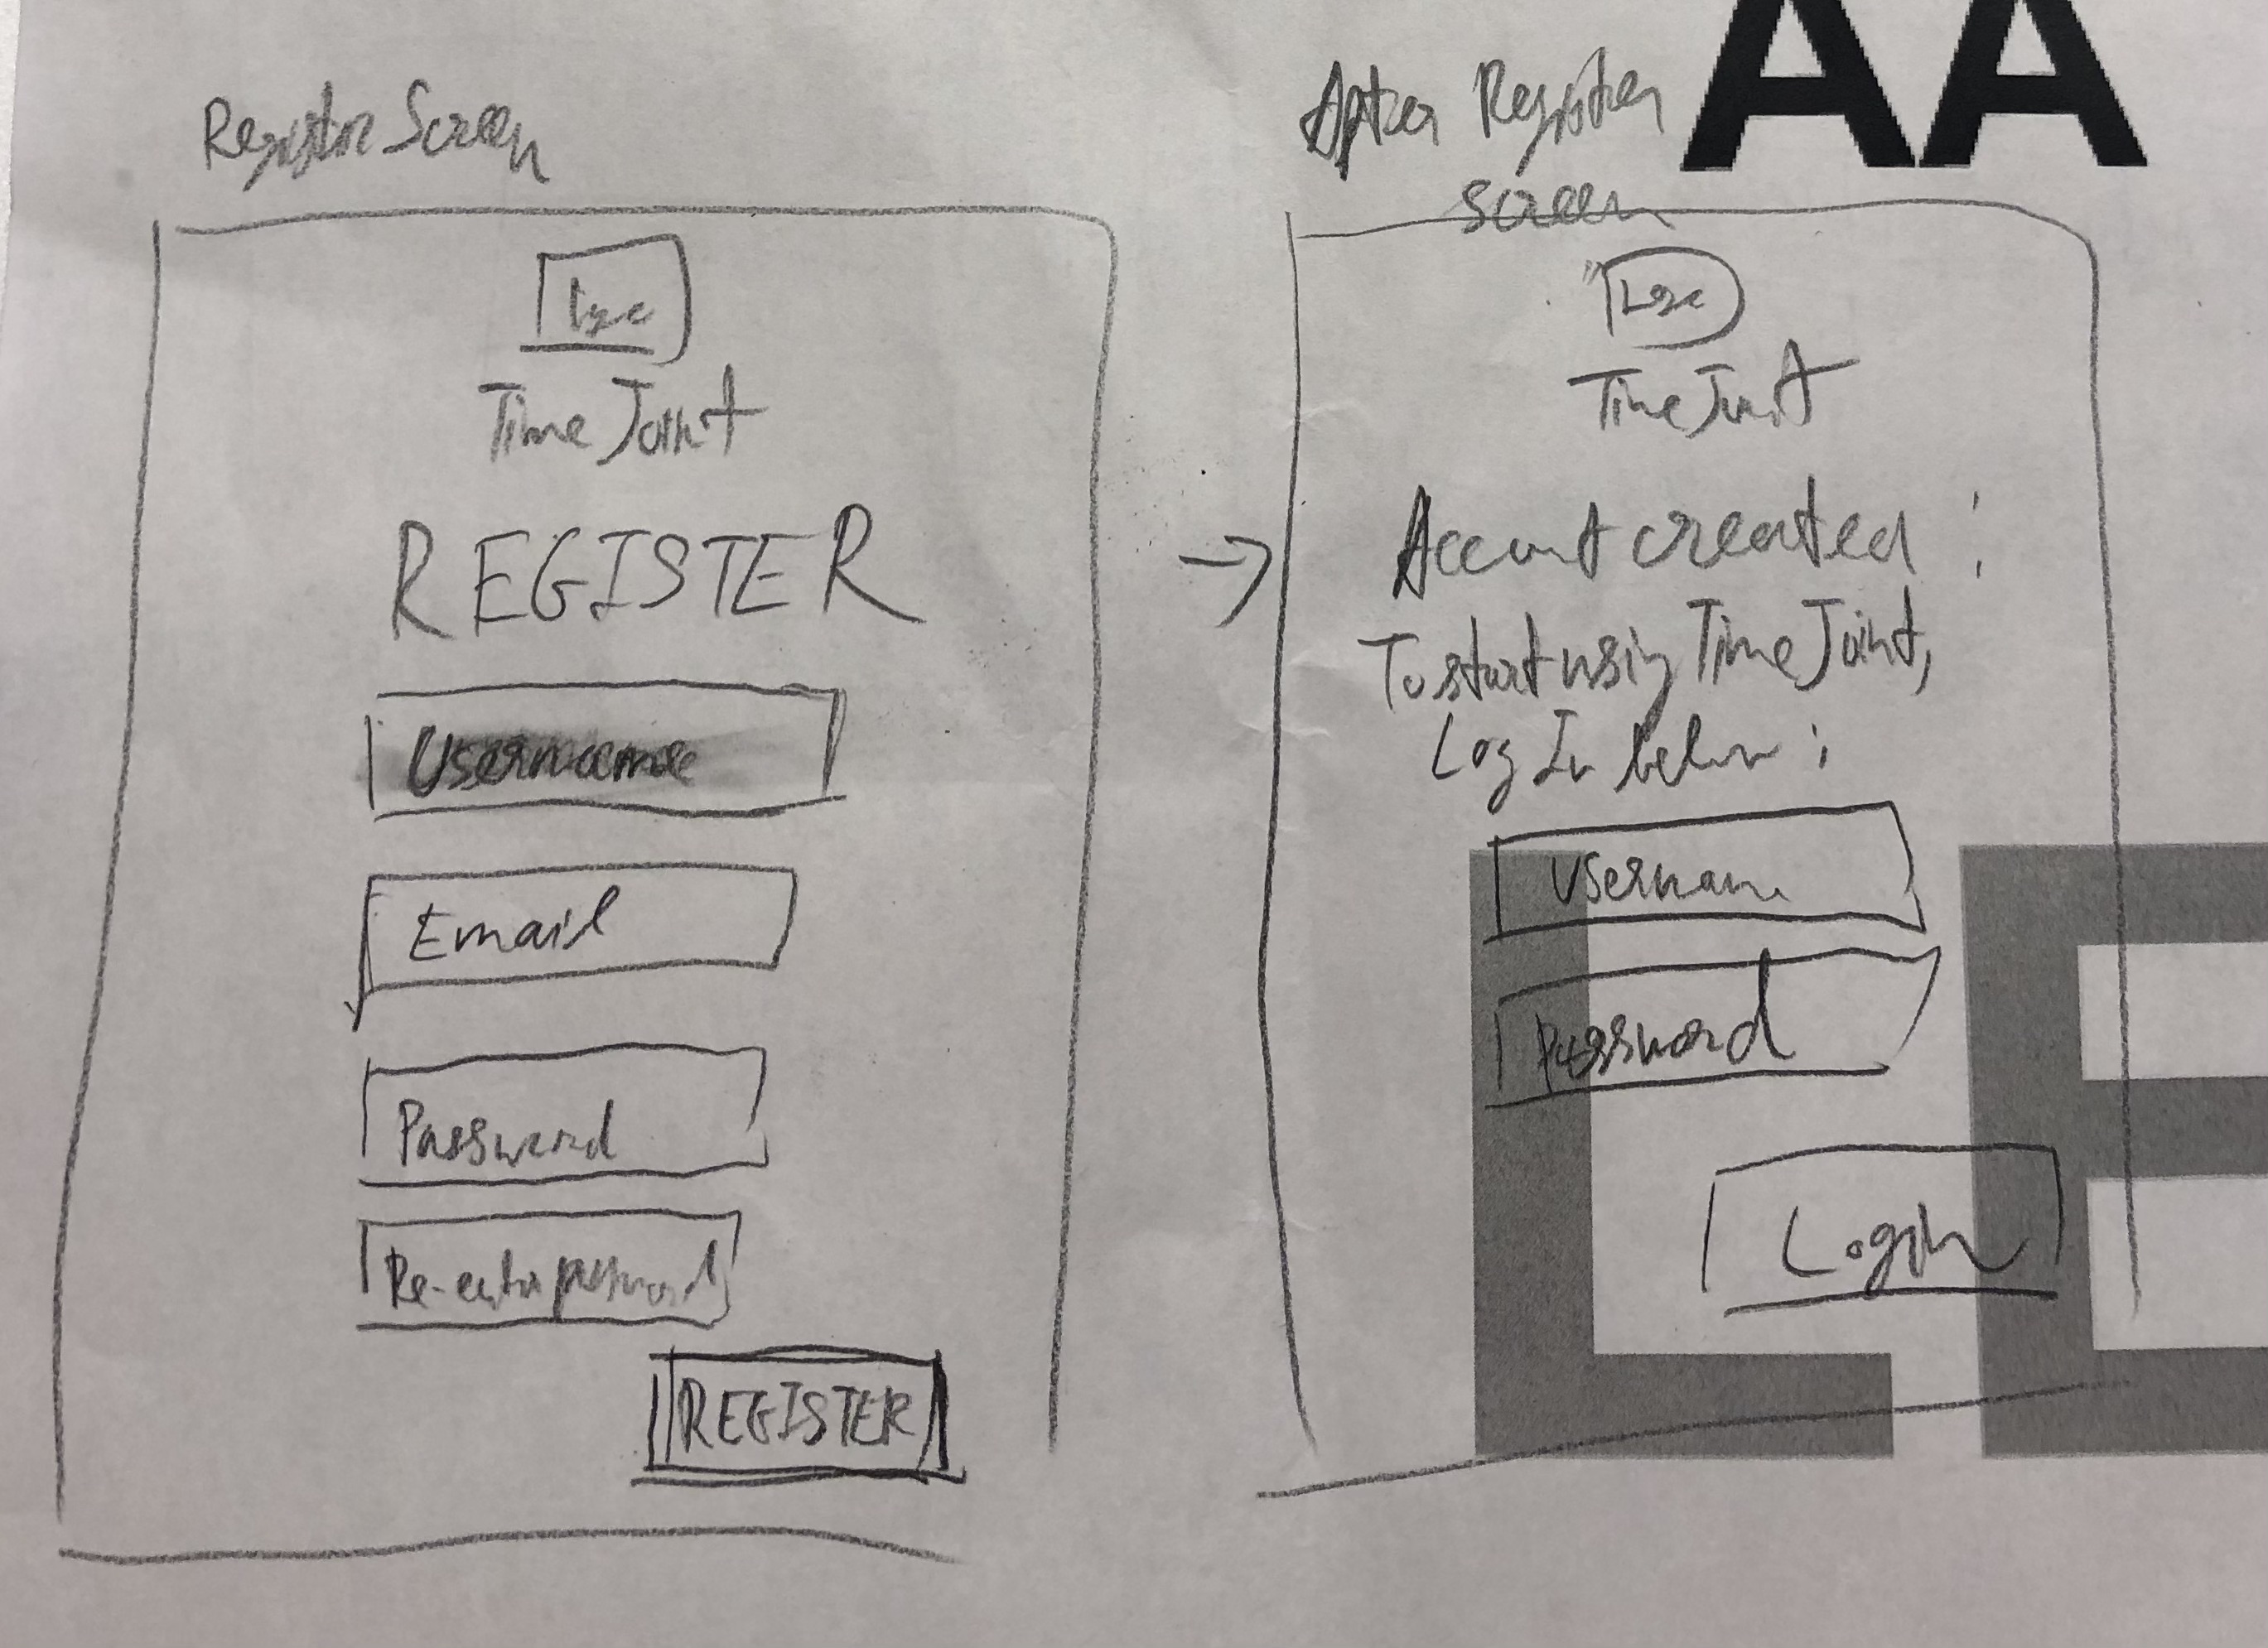 Register Screen
Logo
Time Joint
REGISTER
Username
Email
Password
Re-enter password
REGISTER
→
AA
After Register
screen
Logo
Time Joint
Account created !
To start using Time Joint,
Log In below :
Username
Password
Login
LE